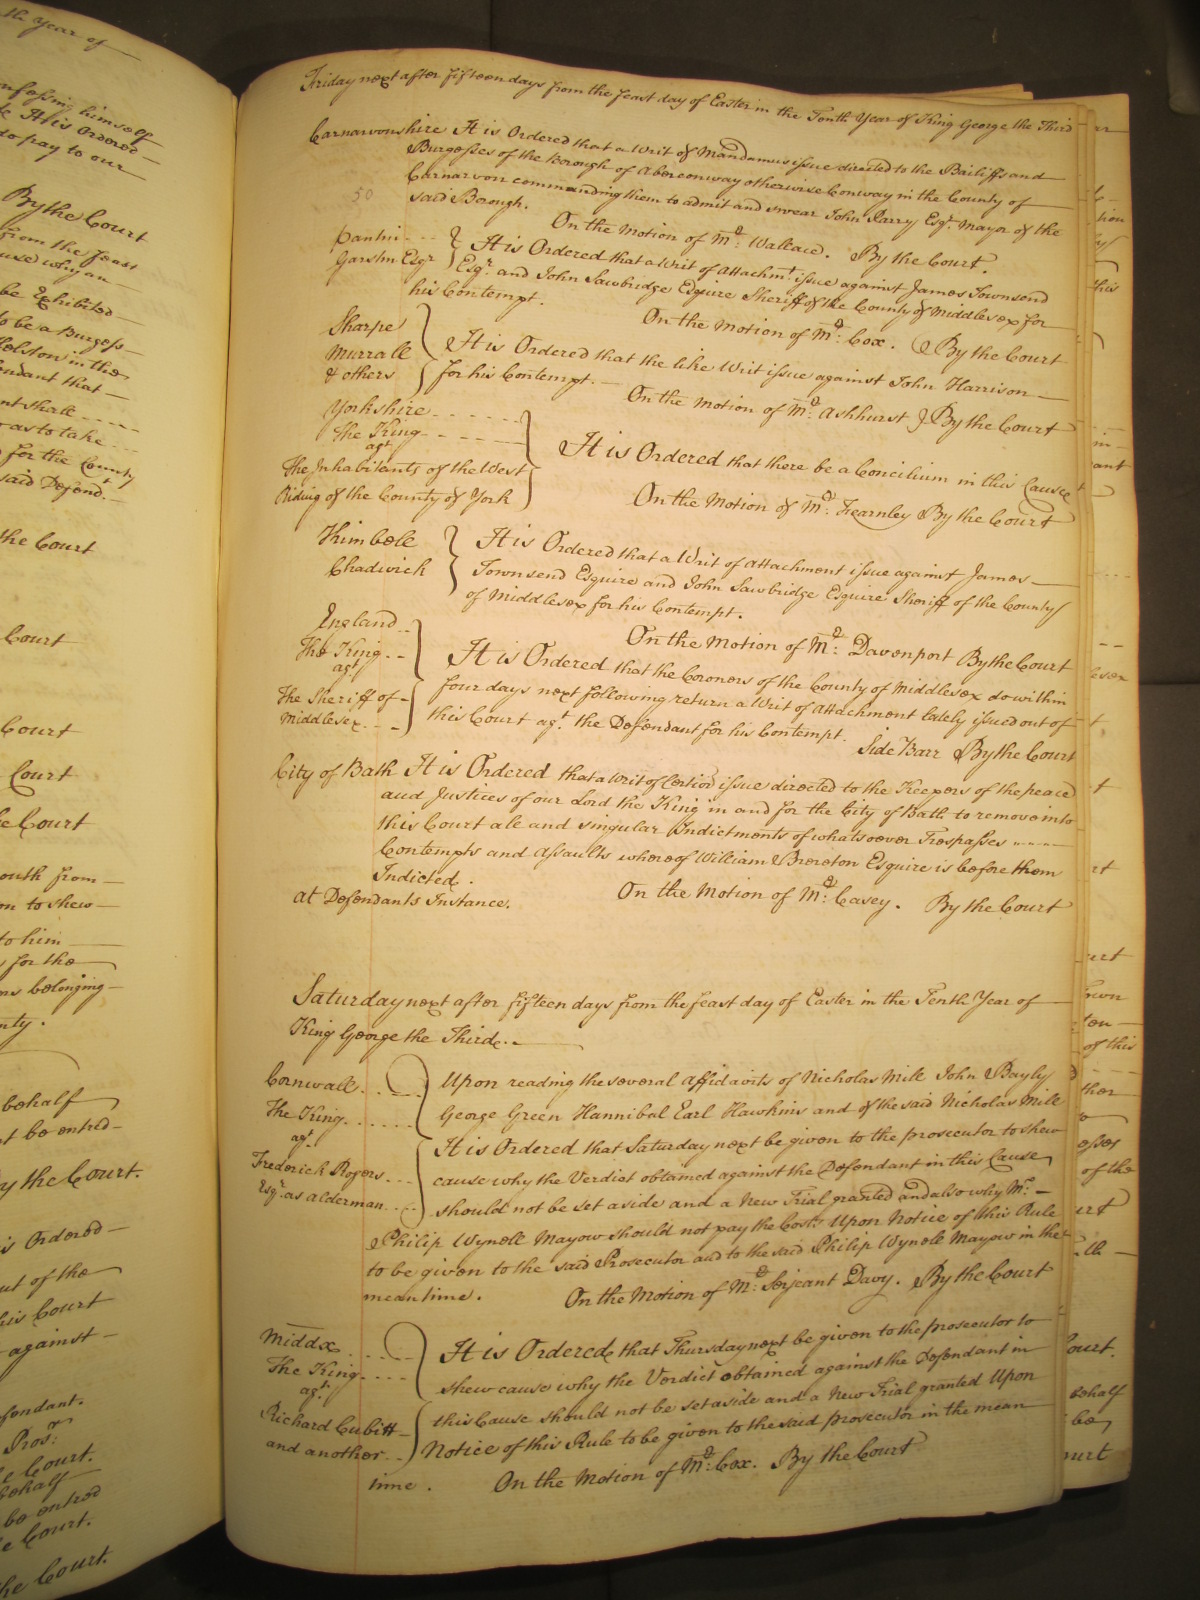 the Year of
confessing himself
It is Ordered
do pay to our
By the Court
from the feast
cause why an
be Exhibited
to be a Burgess
Helston in the
Defendant that
shall
as to take
for the County
said Defend.t
the Court
Court
Court
Court
the Court
South from
on to shew
to him
for the
belonging
behalf
be entred
By the Court.
is Ordered
out of the
his Court
against
fendant.
Pros:r
Court.
behalf
be entred
Court.
the Court.
Friday next after fifteen days from the feast day of Easter in the Tenth Year of King George the Third
Carnarvonshire It is Ordered that a Writ of Mandamus issue directed to the Bailiffs and
Burgesses of the Borough of Aberconway otherwise Conway in the County of
Carnarvon commanding them to admit and swear John Parry Esq.r Mayor of the
50 said Borough.
On the Motion of M.r Wallace. By the Court.
Pantin
Garstin Esqr
It is Ordered that a Writ of Attachm.t issue against James Townsend
Esq.r and John Sawbridge Esquire Sheriff of the County of Middlesex for
his Contempt.
On the Motion of M.r Cox. By the Court
Sharpe
Murrall
& others
It is Ordered that the like Writ issue against John Harrison
for his Contempt.
On the Motion of M.r Ashhurst By the Court
Yorkshire
The King
ag.t
The Inhabitants of the West
Riding of the County of York
It is Ordered that there be a Concilium in this Cause
On the Motion of M.r Fearnley By the Court
Kimbell
Chadwick
It is Ordered that a Writ of Attachment issue against James
Townsend Esquire and John Sawbridge Esquire Sheriff of the County
of Middlesex for his Contempt.
On the Motion of M.r Davenport By the Court
England
The King
ag.t
The Sheriff of
Middlesex
It is Ordered that the Coroners of the County of Middlesex do within
four days next following return a Writ of Attachment lately issued out of
this Court ag.t the Defendant for his Contempt.
Side Barr By the Court
City of Bath It is Ordered that a Writ of Certiori issue directed to the Keepers of the peace
and Justices of our Lord the King in and for the City of Bath to remove into
this Court all and singular Indictments of whatsoever Trespasses
Contempts and Assaults whereof William Brereton Esquire is before them
Indicted.
At Defendants Instance.
On the Motion of M.r Casey. By the Court
Saturday next after fifteen days from the feast day of Easter in the Tenth Year of
King George the Third.
Cornwall
The King
ag.t
Frederick Rogers
Esq.r as alderman
Upon reading the several Affidavits of Nicholas Mill John Bayly
George Green Hannibal Earl Hawkins and of the said Nicholas Mill
It is Ordered that Saturday next be given to the prosecutor to shew
cause why the Verdict obtained against the Defendant in this Cause
should not be set aside and a New Trial granted and also why M.r
Philip Wynell Mayow should not pay the Costs Upon Notice of this Rule
to be given to the said Prosecutor and to the said Philip Wynell Mayow in the
mean time.
On the Motion of M.r Serjeant Davy. By the Court
Middx
The King
ag.t
Richard Cubitt
and another
It is Ordered that Thursday next be given to the prosecutor to
shew cause why the Verdict obtained against the Defendant in
this Cause should not be set aside and a New Trial granted Upon
Notice of this Rule to be given to the said prosecutor in the mean
time.
On the Motion of M.r Cox. By the Court